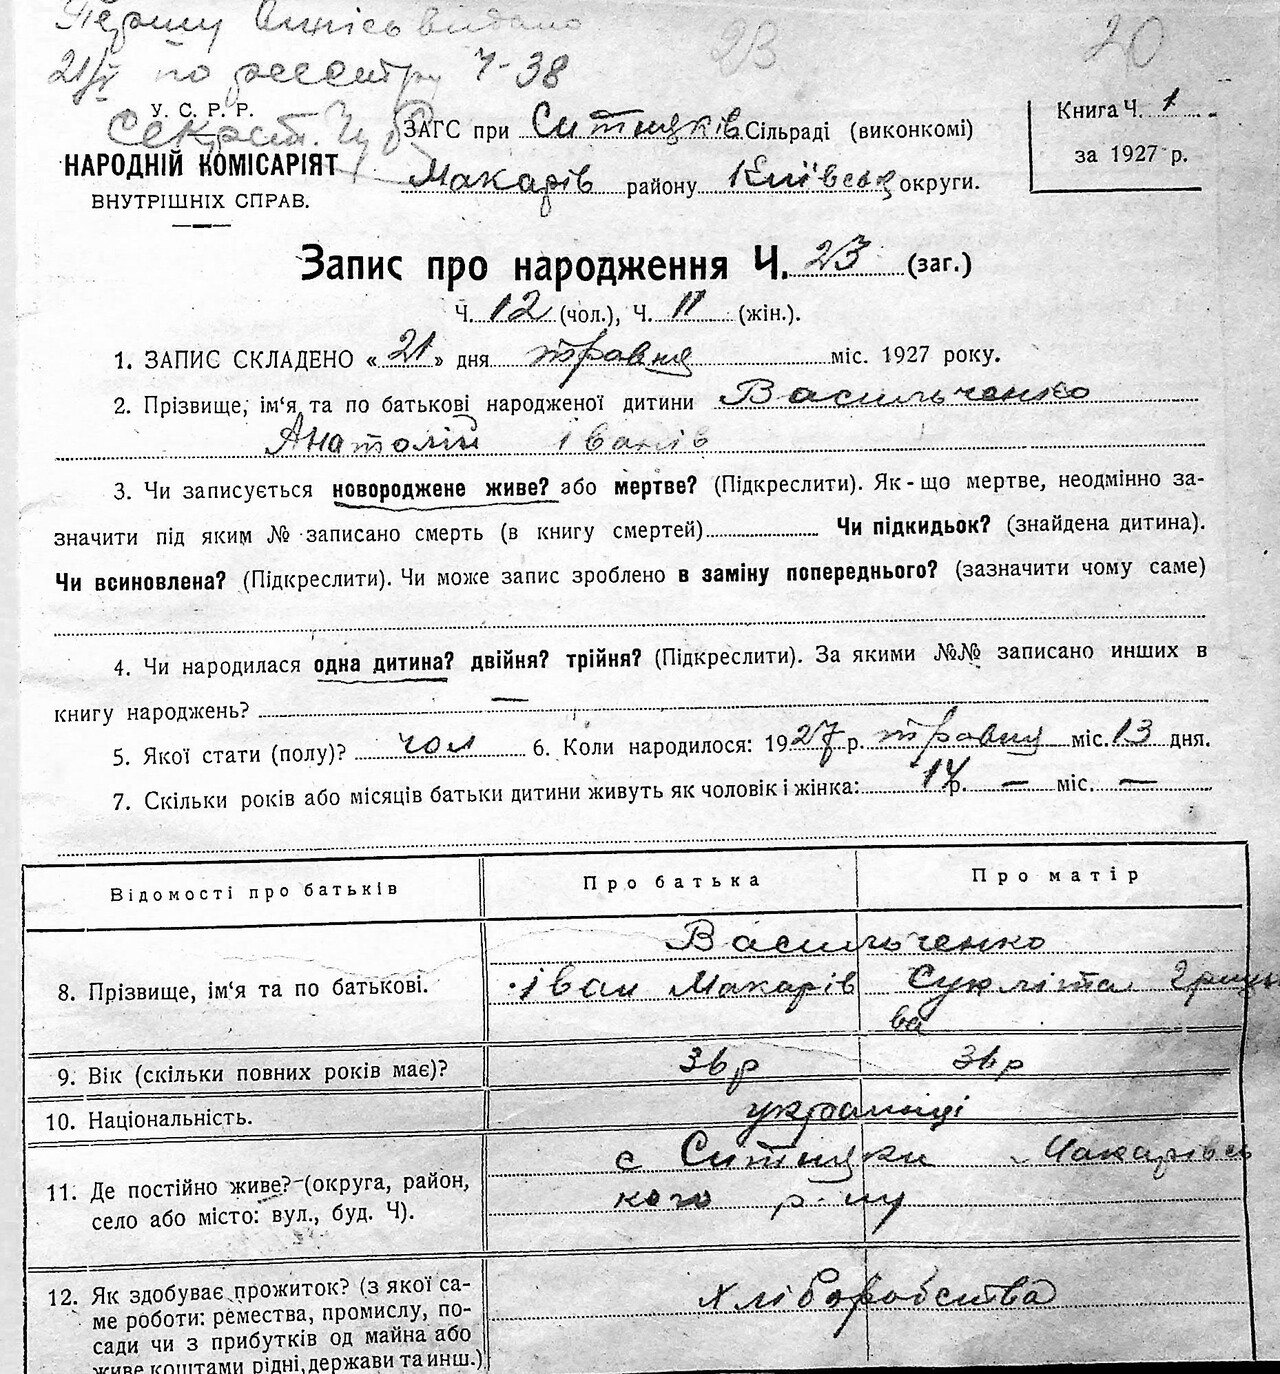 Першу виписьвидано
21/V по реестру 7-38
Секрет.
23
20
У. С. Р. Р.
НАРОДНІЙ КОМІСАРІЯТ
ВНУТРІШНІХ СПРАВ.
ЗАГС при Ситняків Сільраді (виконкомі)
Макарів району Київськ округи.
Книга Ч. 1
за 1927 р.
Запис про народження Ч. 23 (заг.)
Ч. 12 (чол.), Ч. 11 (жін.).
1. ЗАПИС СКЛАДЕНО « 21 » дня травня міс. 1927 року.
2. Прізвище, ім'я та по батькові народженої дитини Васильченко
Анатолій Іванів
3. Чи записується новороджене живе? або мертве? (Підкреслити). Як-що мертве, неодмінно за-
значити під яким № записано смерть (в книгу смертей) Чи підкидьок? (знайдена дитина).
Чи всиновлена? (Підкреслити). Чи може запис зроблено в заміну попереднього? (зазначити чому саме)
4. Чи народилася одна дитина? двійня? трійня? (Підкреслити). За якими №№ записано инших в
книгу народжень? —
5. Якої стати (полу)? чол 6. Коли народилося: 1927 р. травня міс. 13 дня.
7. Скільки років або місяців батьки дитини живуть як чоловік і жінка: 14 р. — міс. —
Відомості про батьків Про батька Про матір
Васильченко
8. Прізвище, ім'я та по батькові. Іван Макарів
ва
9. Вік (скільки повних років має)? 36 р 36 р
10. Національність. українці
11. Де постійно живе? (округа, район, с Ситняки Макарівсь
село або місто: вул., буд. Ч). кого р-ну
12. Як здобуває прожиток? (з якої са-
ме роботи: ремества, промислу, по- хліборобства
сади чи з прибутків од майна або
живе коштами рідні, держави та инш.)